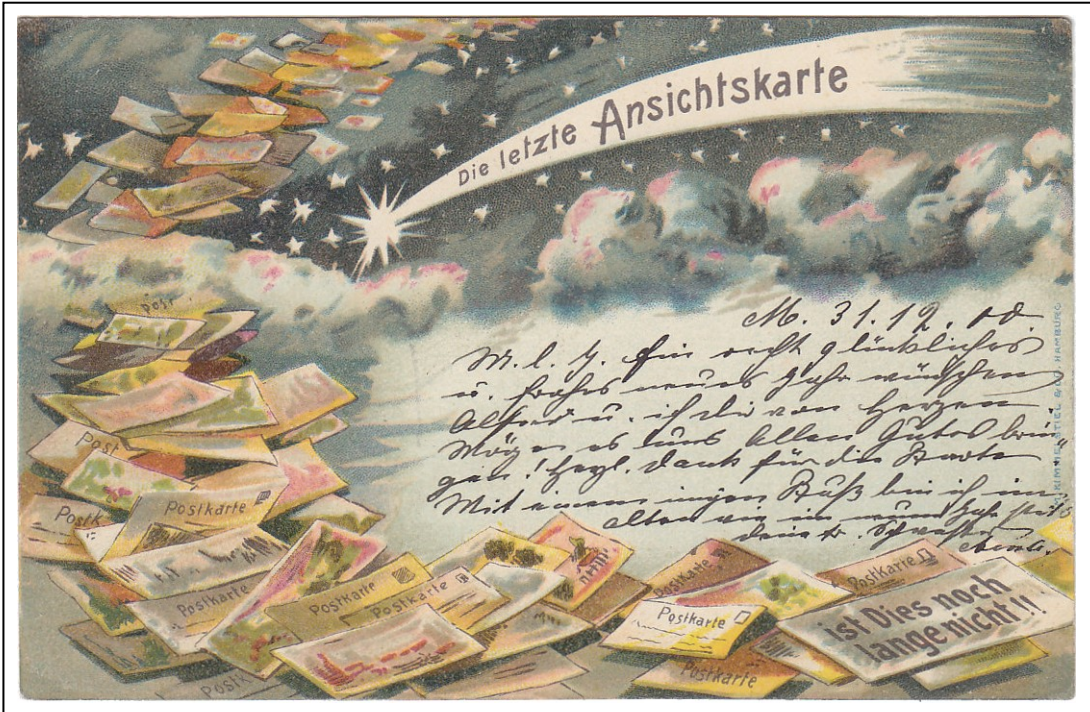 Die letzte Ansichtskarte
M. 31.12.
M. l. Ein recht glückliches
u. frohes neues Jahr wünschen
u. ich dir von Herzen.
Möge es uns Allen Gutes brin
gen! Herzl. Dank für die Karte
Mit einem innigen Kuß bin ich im
alten wie im neuen Jahr stets
deine tr. Schwester
Post
Post
Postkarte
Postk
Postkarte
Postkarte
Postkarte
Postkarte
Postkarte
Postkarte
Postkarte
Postkarte
Postk
ist Dies noch
lange nicht!!
HAMBURG